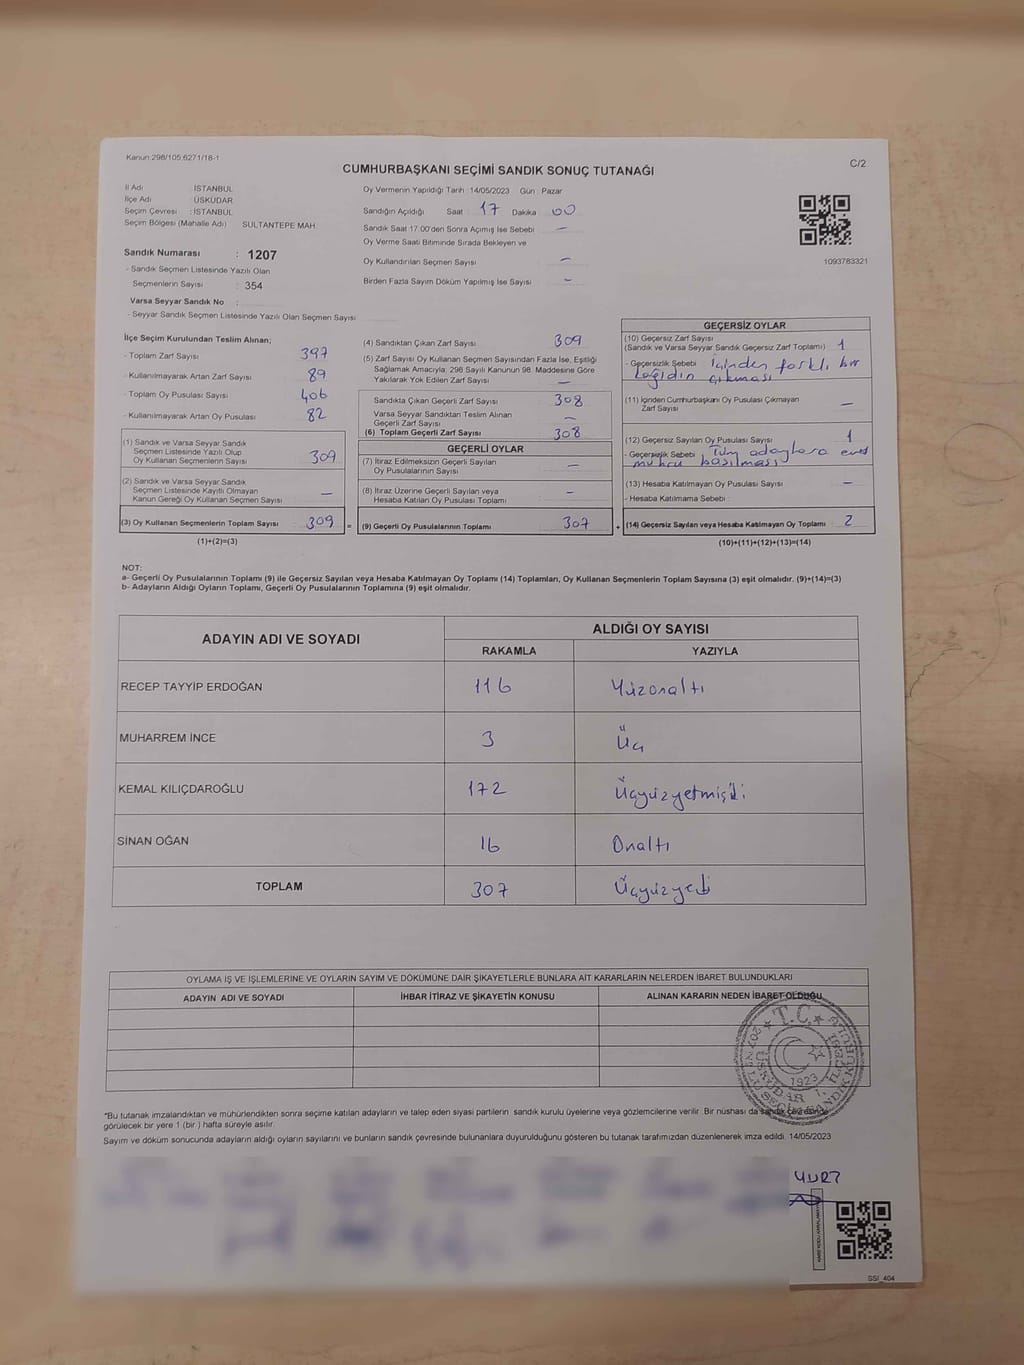 Kanun:298/105,6271/18-1
C/2
CUMHURBAŞKANI SEÇİMİ SANDIK SONUÇ TUTANAĞI
İl Adı : İSTANBUL
İlçe Adı : ÜSKÜDAR
Seçim Çevresi : İSTANBUL
Seçim Bölgesi (Mahalle Adı) SULTANTEPE MAH
Sandık Numarası : 1207
- Sandık Seçmen Listesinde Yazılı Olan
Seçmenlerin Sayısı : 354
Varsa Seyyar Sandık No :
- Seyyar Sandık Seçmen Listesinde Yazılı Olan Seçmen Sayısı
Oy Vermenin Yapıldığı Tarih :14/05/2023 Gün : Pazar
Sandığın Açıldığı Saat : 17 Dakika : 00
Sandık Saat 17.00'den Sonra Açımış İse Sebebi : –
Oy Verme Saati Bitiminde Sırada Bekleyen ve
Oy Kullandırılan Seçmen Sayısı : –
Birden Fazla Sayım Döküm Yapılmış İse Sayısı : –
1093783321
İlçe Seçim Kurulundan Teslim Alınan;
- Toplam Zarf Sayısı : 397
- Kullanılmayarak Artan Zarf Sayısı : 89
- Toplam Oy Pusulası Sayısı : 406
- Kullanılmayarak Artan Oy Pusulası : 82
(1) Sandık ve Varsa Seyyar Sandık
Seçmen Listesinde Yazılı Olup
Oy Kullanan Seçmenlerin Sayısı : 309
(2) Sandık ve Varsa Seyyar Sandık
Seçmen Listesinde Kayıtlı Olmayan
Kanun Gereği Oy Kullanan Seçmen Sayısı : –
(3) Oy Kullanan Seçmenlerin Toplam Sayısı : 309 =
(1)+(2)=(3)
(4) Sandıktan Çıkan Zarf Sayısı : 309
(5) Zarf Sayısı Oy Kullanan Seçmen Sayısından Fazla İse, Eşitliği
Sağlamak Amacıyla; 298 Sayılı Kanunun 98. Maddesine Göre
Yakılarak Yok Edilen Zarf Sayısı : –
Sandıkta Çıkan Geçerli Zarf Sayısı : 308
Varsa Seyyar Sandıktan Teslim Alınan
Geçerli Zarf Sayısı : –
(6) Toplam Geçerli Zarf Sayısı : 308
GEÇERLİ OYLAR
(7) İtiraz Edilmeksizin Geçerli Sayılan
Oy Pusulalarının Sayısı : –
(8) İtiraz Üzerine Geçerli Sayılan veya
Hesaba Katılan Oy Pusulaları Toplamı : –
(9) Geçerli Oy Pusulalarının Toplamı : 307 +
GEÇERSİZ OYLAR
(10) Geçersiz Zarf Sayısı
(Sandık ve Varsa Seyyar Sandık Geçersiz Zarf Toplamı) : 1
- Geçersizlik Sebebi : İçinden farklı bir
kağıdın çıkması
(11) İçinden Cumhurbaşkanı Oy Pusulası Çıkmayan
Zarf Sayısı : –
(12) Geçersiz Sayılan Oy Pusulası Sayısı : 1
- Geçersizlik Sebebi : Tüm adaylara evet
mührü basılması
(13) Hesaba Katılmayan Oy Pusulası Sayısı : –
- Hesaba Katılmama Sebebi :
(14) Geçersiz Sayılan veya Hesaba Katılmayan Oy Toplamı : 2
(10)+(11)+(12)+(13)=(14)
NOT:
a- Geçerli Oy Pusulalarının Toplamı (9) ile Geçersiz Sayılan veya Hesaba Katılmayan Oy Toplamı (14) Toplamları, Oy Kullanan Seçmenlerin Toplam Sayısına (3) eşit olmalıdır. (9)+(14)=(3)
b- Adayların Aldığı Oyların Toplamı, Geçerli Oy Pusulalarının Toplamına (9) eşit olmalıdır.
ADAYIN ADI VE SOYADI ALDIĞI OY SAYISI
RAKAMLA YAZIYLA
RECEP TAYYİP ERDOĞAN 116 Yüzonaltı
MUHARREM İNCE 3 Üç
KEMAL KILIÇDAROĞLU 172 Üçyüzyetmişiki
SİNAN OĞAN 16 Onaltı
TOPLAM 307 Üçyüzyedi
OYLAMA İŞ VE İŞLEMLERİNE VE OYLARIN SAYIM VE DÖKÜMÜNE DAİR ŞİKAYETLERLE BUNLARA AİT KARARLARIN NELERDEN İBARET BULUNDUKLARI
ADAYIN ADI VE SOYADI İHBAR İTİRAZ VE ŞİKAYETİN KONUSU ALINAN KARARIN NEDEN İBARET OLDUĞU
T.C.
1923
ÜSKÜDAR
*Bu tutanak imzalandıktan ve mühürlendikten sonra seçime katılan adayların ve talep eden siyasi partilerin sandık kurulu üyelerine veya gözlemcilerine verilir. Bir nüshası da sandık çevresinde
görülecek bir yere 1 (bir ) hafta süreyle asılır.
Sayım ve döküm sonucunda adayların aldığı oyların sayılarını ve bunların sandık çevresinde bulunanlara duyurulduğunu gösteren bu tutanak tarafımızdan düzenlenerek imza edildi. 14/05/2023
SSI_404